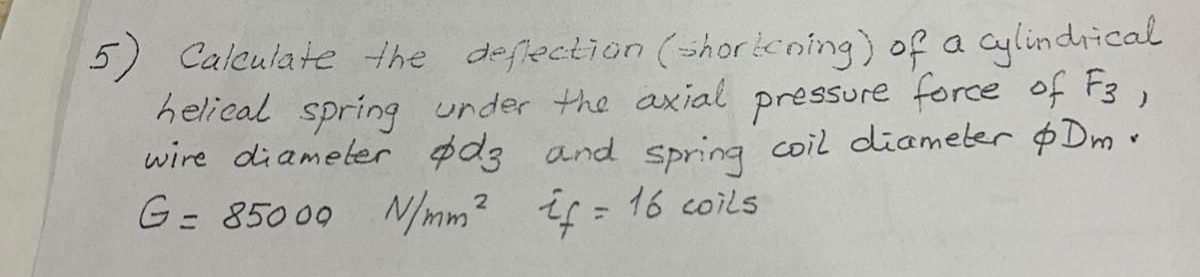 5) Calculate the deflection (shortening) of a cylindrical
helical spring under the axial pressure force of F3,
wire diameter ϕd3 and spring coil diameter ϕDm.
G = 85000 N/mm² if = 16 coils